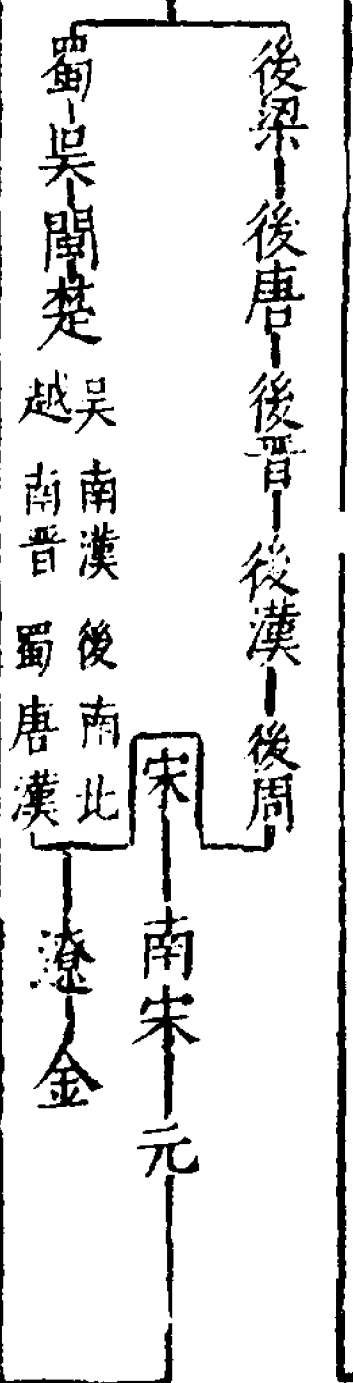 後梁後唐後晋後漢後周
宋南宋元
蜀吳閩楚
吳南漢後南北
越南晋蜀唐漢
遼金